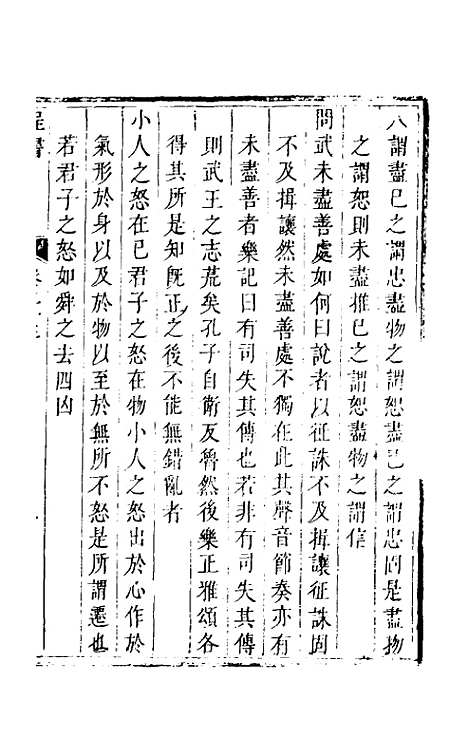 人謂盡已之謂忠盡物之謂恕盡已之謂忠固是盡物
之謂恕則未盡推已之謂恕盡物之謂信
問武未盡善處如何曰說者以征誅不及揖讓征誅固
不及揖讓然未盡善處不獨在此其聲音節奏亦有
未盡善者樂記曰有司失其傳也若非有司失其傳
則武王之志荒矣孔子自衛反魯然後樂正雅頌各
得其所是知旣正之後不能無錯亂者
小人之怒在已君子之怒在物小人之怒出於心作於
氣形於身以及於物以至於無所不怒是所謂遷也
若君子之怒如舜之去四凶
程書